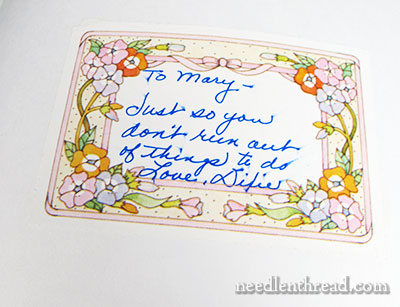 To Mary-
Just so you
don't run out
of things to do
Love, Dixie
needlenthread.com